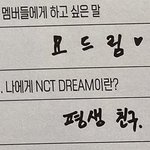 멤버들에게 하고 싶은 말
요 드림 ♥
. 나에게 NCT DREAM이란?
평생 친구.